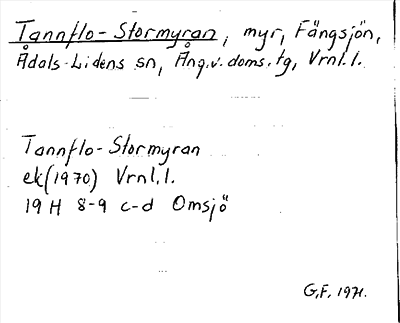 Tannflo-Stormyran, myr, Fängsjön,
Ådals-Lidens sn, Ång.v.doms.tg, Vrnl.l.
Tannflo-Stormyran
ek(1970) Vrnl.l.
19 H 8-9 c-d Omsjö
G.F. 1971.